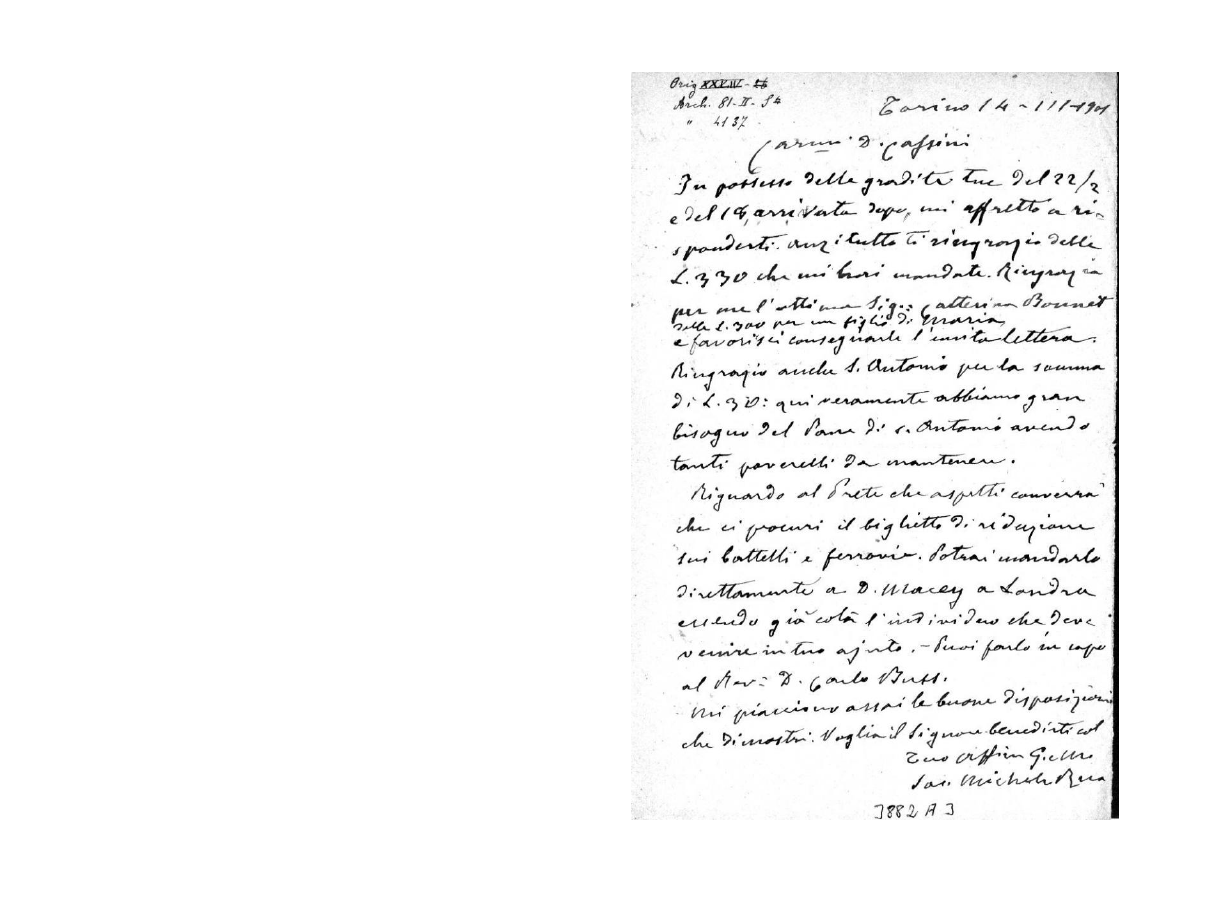 Orig XXXIV - 26
Arch. 81-II-54
" 4137
Torino 14-III-1901
Carmo D. Cassini
In possesso delle gradite tue del 22/2
e del 18, arrivata dopo, mi affretto a ri-
sponderti. Anzitutto ti ringrazio delle
L. 330 che mi hai mandate. Ringrazia
per me l'ottima Sig.ra Catterina Bonnet
delle L. 300 per un figlio di Maria
e favorisci consegnarle l'unita lettera.
Ringrazio anche S. Antonio per la somma
di L. 30: qui veramente abbiamo gran
bisogno del Pane di S. Antonio avendo
tanti poverelli da mantenere.
Riguardo al Prete che aspetti converrà
che ci procuri il biglietto di riduzione
sui battelli e ferrovie. Potrai mandarlo
direttamente a D. Macey a Londra
essendo già colà l'individuo che deve
venire in tuo ajuto. - Puoi farlo in capo
al Rev. D. Carlo Buss.
Mi piacciono assai le buone disposizioni
che dimostri. Voglia il Signore benedirti col
Tuo Affm G. e M.
Sac. Michele Rua
3882 A 3